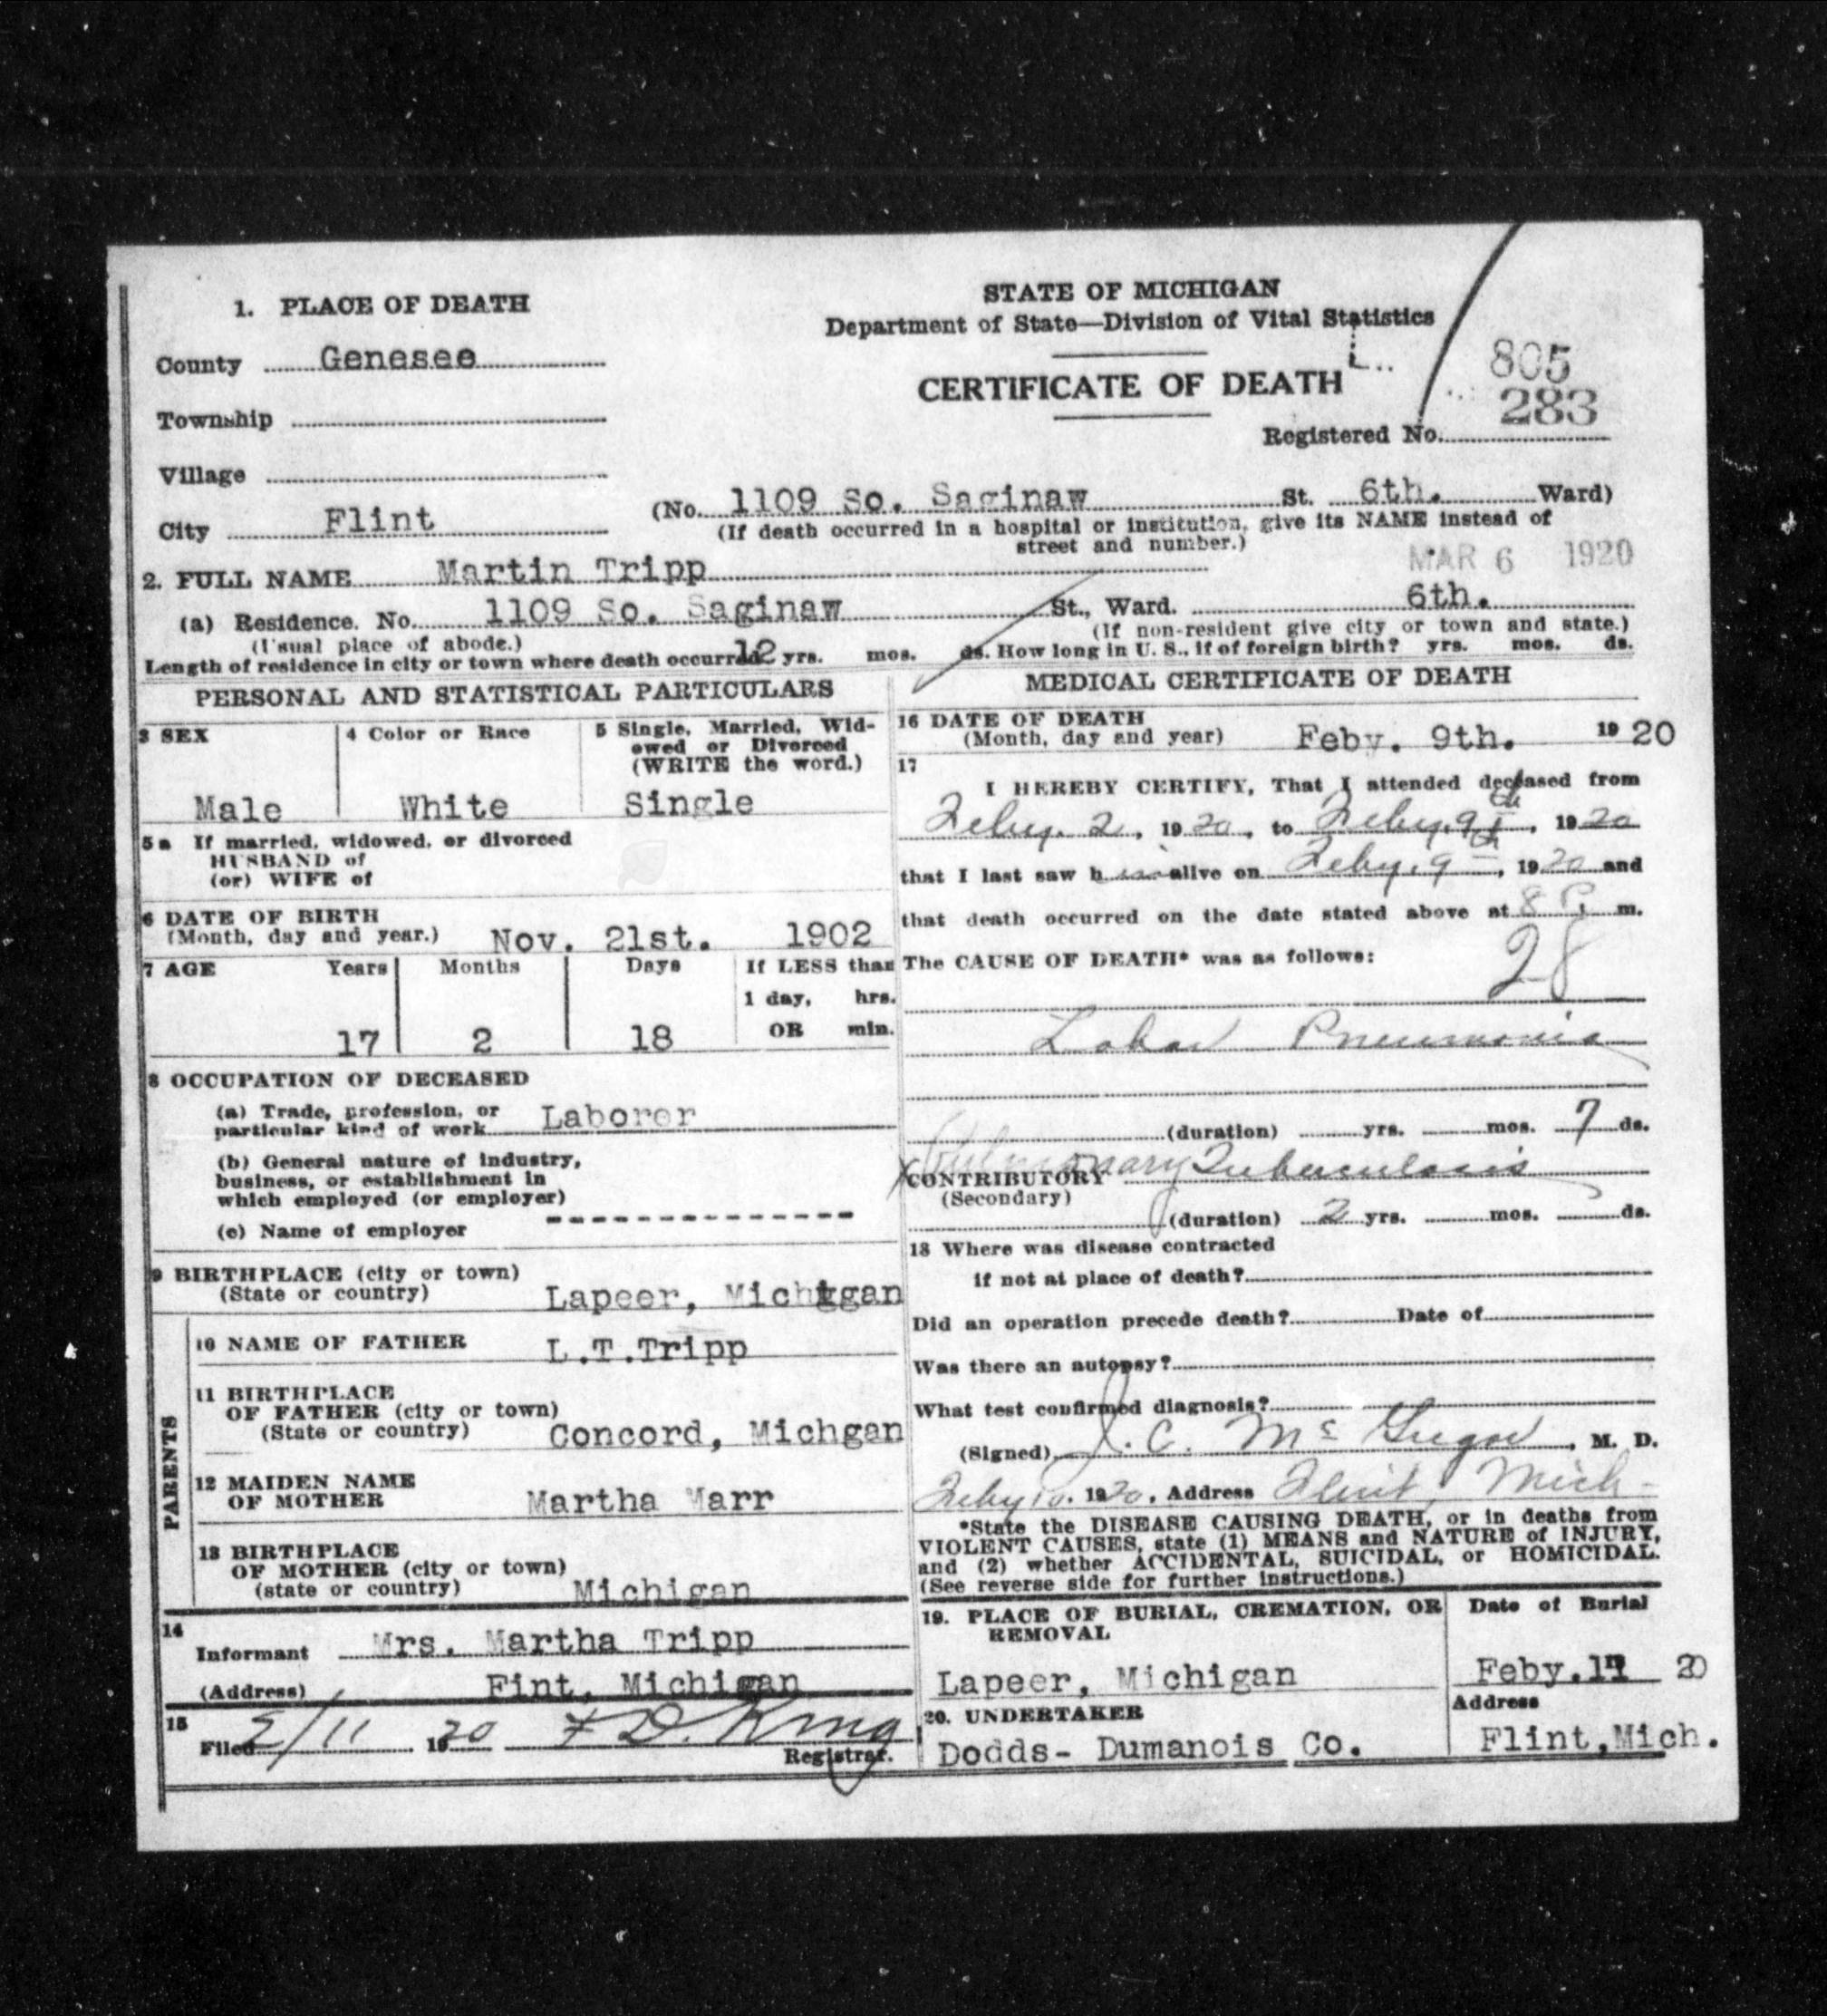 1. PLACE OF DEATH
County Genesee
Township
Village
City Flint
STATE OF MICHIGAN
Department of State—Division of Vital Statistics
CERTIFICATE OF DEATH
805
283
Registered No.
(No. 1109 So. Saginaw St. 6th. Ward)
(If death occurred in a hospital or institution, give its NAME instead of
street and number.)
MAR 6 1920
2. FULL NAME Martin Tripp
(a) Residence. No. 1109 So. Saginaw St., Ward. 6th.
(Usual place of abode.) (If non-resident give city or town and state.)
Length of residence in city or town where death occurred 12 yrs. mos. ds. How long in U. S., if of foreign birth? yrs. mos. ds.
PERSONAL AND STATISTICAL PARTICULARS
3 SEX
Male
4 Color or Race
White
5 Single, Married, Wid-
owed or Divorced
(WRITE the word.)
Single
5a If married, widowed, or divorced
HUSBAND of
(or) WIFE of
6 DATE OF BIRTH
(Month, day and year.) Nov. 21st. 1902
7 AGE Years Months Days If LESS than
1 day, hrs.
OR min.
17 2 18
8 OCCUPATION OF DECEASED
(a) Trade, profession, or
particular kind of work Laborer
(b) General nature of industry,
business, or establishment in
which employed (or employer)
(c) Name of employer
9 BIRTHPLACE (city or town)
(State or country) Lapeer, Michigan
PARENTS
10 NAME OF FATHER L.T.Tripp
11 BIRTHPLACE
OF FATHER (city or town)
(State or country) Concord, Michgan
12 MAIDEN NAME
OF MOTHER Martha Marr
13 BIRTHPLACE
OF MOTHER (city or town)
(state or country) Michigan
14
Informant Mrs. Martha Tripp
(Address) Fint, Michigan
15
Filed 2/11 1920 F D. King
Registrar.
MEDICAL CERTIFICATE OF DEATH
16 DATE OF DEATH
(Month, day and year) Feby. 9th. 1920
17
I HEREBY CERTIFY, That I attended deceased from
Feby. 2, 1920, to Feby. 9th, 1920
that I last saw him alive on Feby. 9th, 1920 and
that death occurred on the date stated above at 8 P. m.
The CAUSE OF DEATH* was as follows:
28
Lobar Pneumonia
(duration) yrs. mos. 7 ds.
Pulmonary Tuberculosis
CONTRIBUTORY
(Secondary)
(duration) 2 yrs. mos. ds.
18 Where was disease contracted
if not at place of death?
Did an operation precede death? Date of
Was there an autopsy?
What test confirmed diagnosis?
(Signed) J. C. McGregor, M. D.
Feby 10. 1920. Address Flint, Mich-
*State the DISEASE CAUSING DEATH, or in deaths from
VIOLENT CAUSES, state (1) MEANS and NATURE of INJURY,
and (2) whether ACCIDENTAL, SUICIDAL, or HOMICIDAL.
(See reverse side for further instructions.)
19. PLACE OF BURIAL, CREMATION, OR
REMOVAL
Lapeer, Michigan
Date of Burial
Feby. 20
20. UNDERTAKER
Dodds- Dumanois Co.
Address
Flint,Mich.